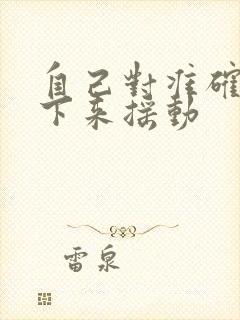 自己對准確
下来摇動
雷泉